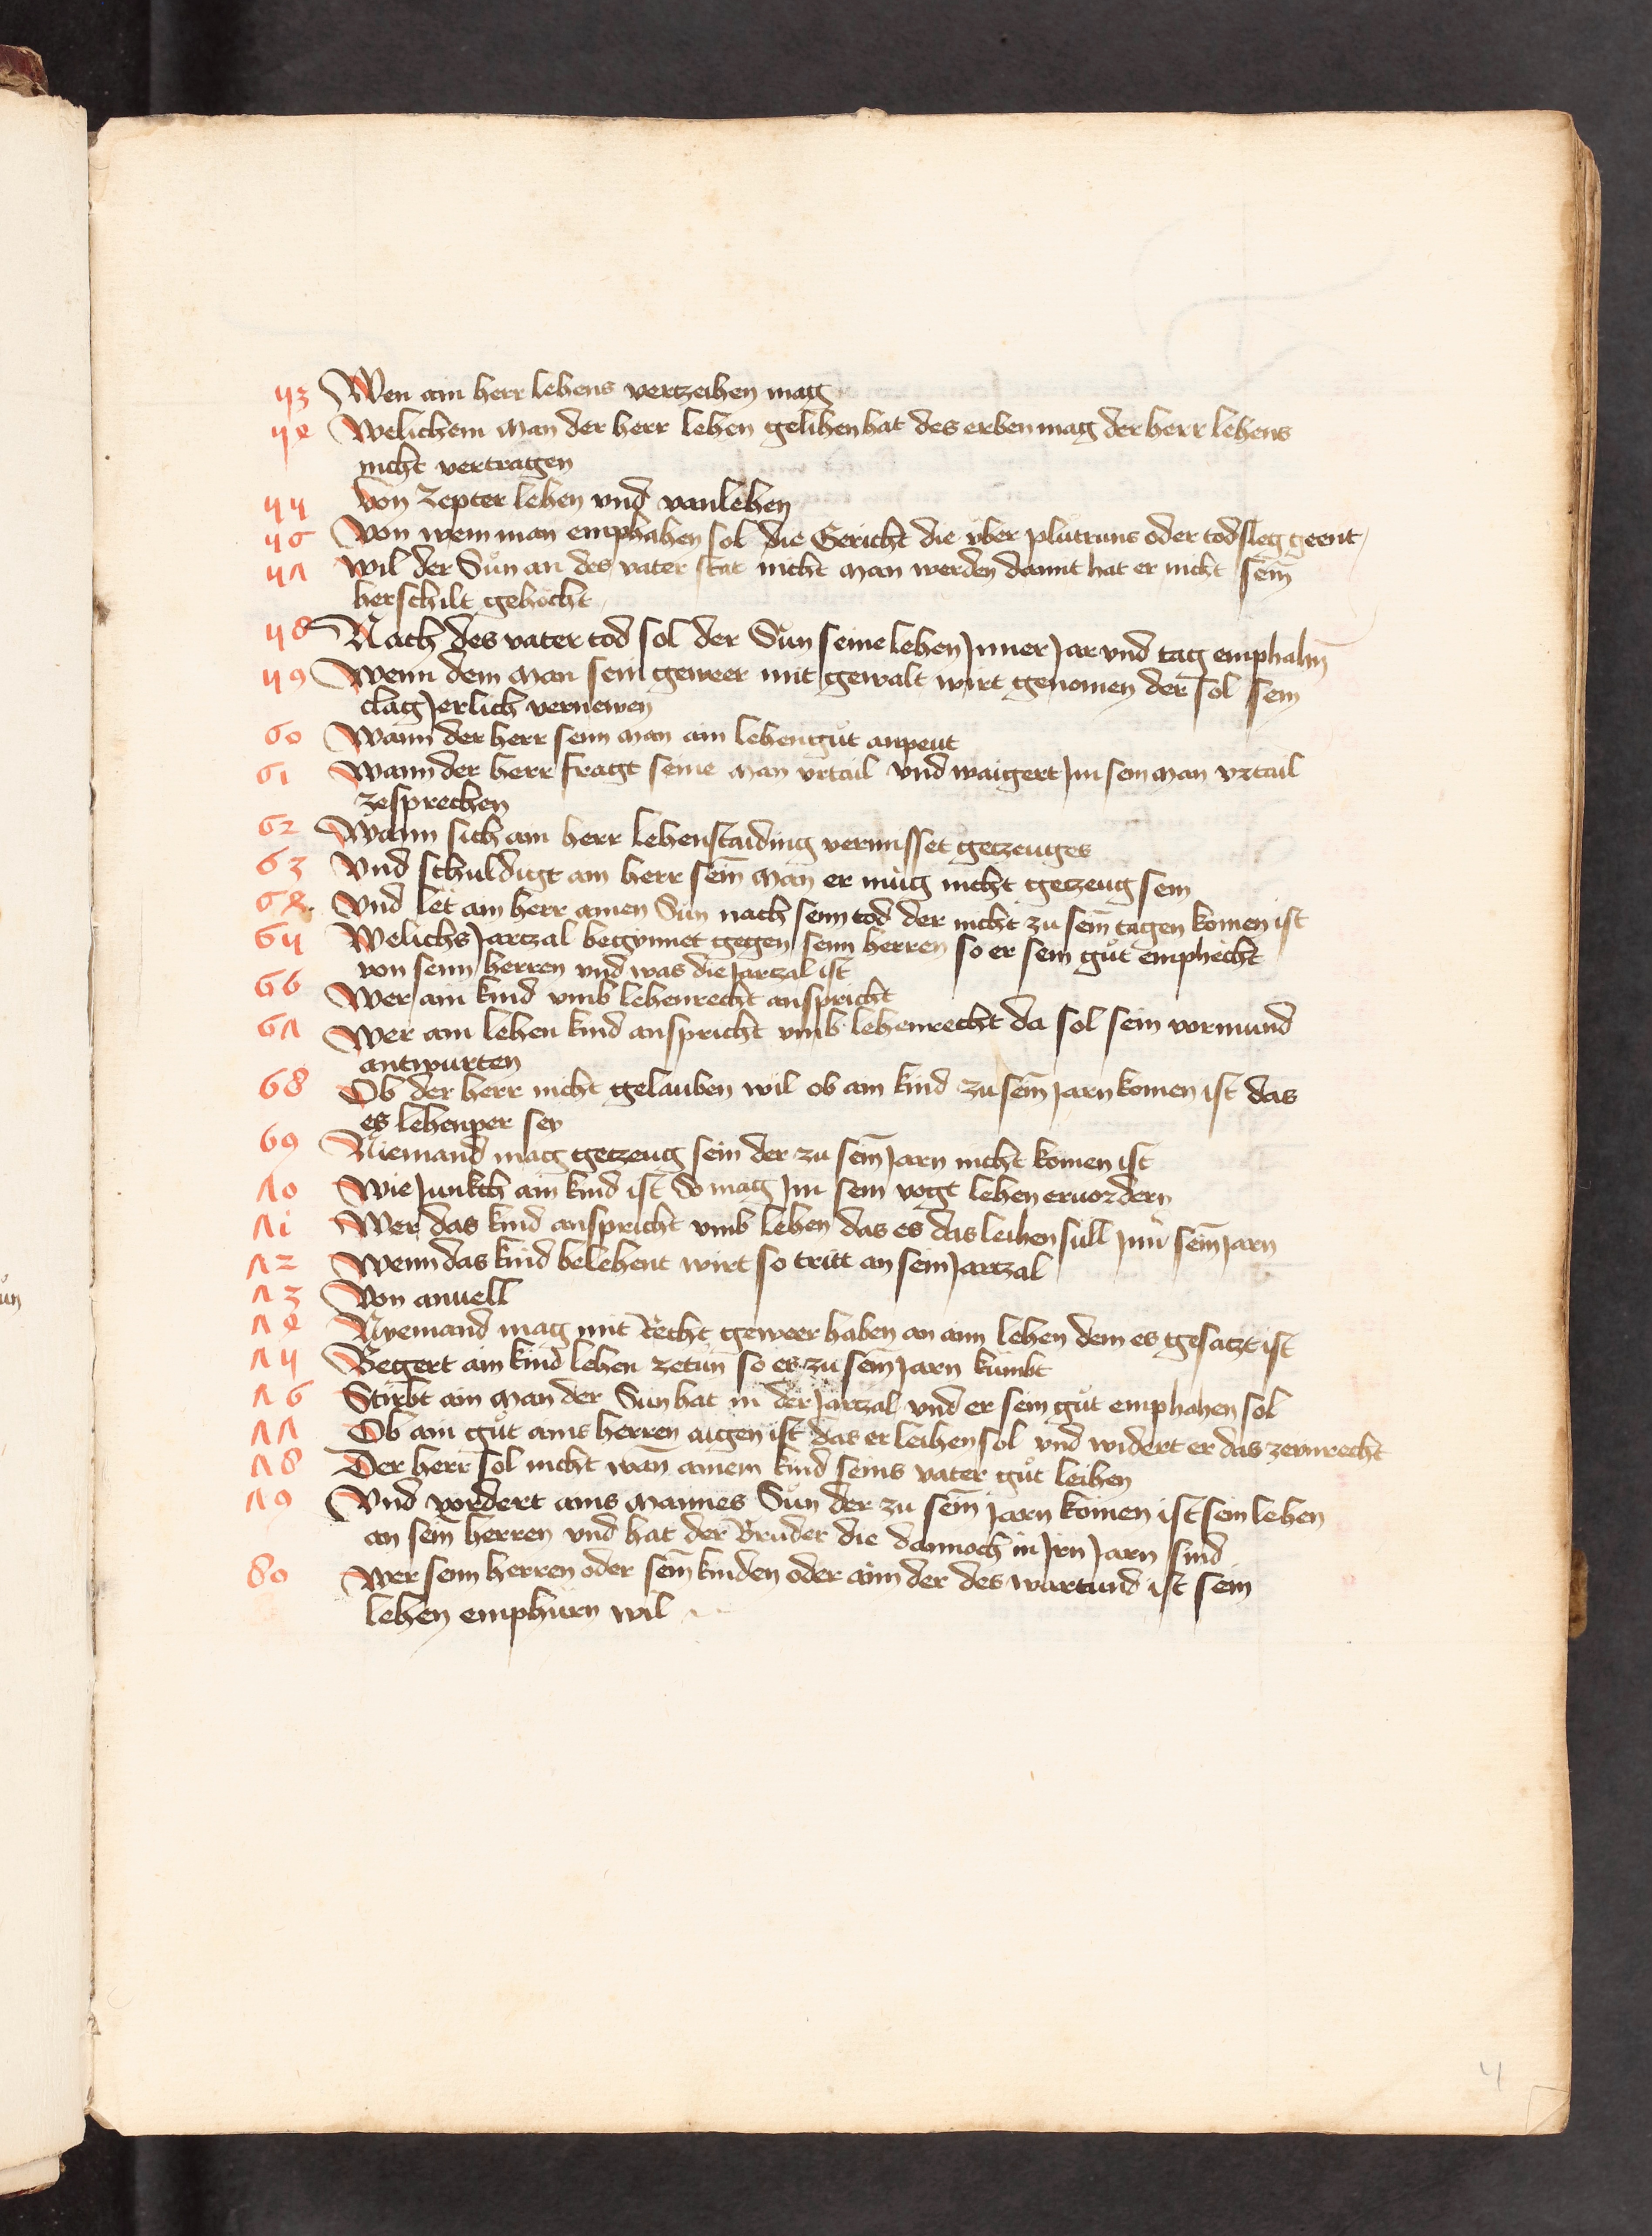 53 Wen ain herr lehens vertzeihen mag
54 Welichem man der herr lehen gelihen hat des erben mag der herr lehens
nicht vertragen
55 Von Zepter lehen vnd vanlehen
56 Von wem man emphahen sol die Gericht die vber plutruns oder todsleg geent
57 Wil der Sůn an des vater stat nicht man werden damit hat er nicht sein̄
herschilt gehöcht
58 Nach des vater tod sol der Sůn seine lehen Jnner Jar vnd tag emphahn̄
59 Wenn dem man sein geweer mit gewalt wirt genomen der sol sein
clag Jerlich vernewen
60 Wann der herr seim man ain lehengůt anpeut
61 Wann der herr fragt seine man vrtail vnd waigert Jm sein man vrtail
zesprechen
62 Wann sich ain herr lehenstaiding vermisset getzeuges
63 Vnd schuldigt ain herr sein̄ man er müg nicht getzeug sein
64 Vnd let ain herr ainen Sůn nach seim tod der nicht zu sein̄ tagen komen ist
65 Welichs Jartzal begynnet gegen seim herren so er sein gůt emphecht
von seim herren vnd was die Jartzal ist
66 Wer ain kind vmb lehenrecht anspricht
67 Wer ain lehen kind anspricht vmb lehenrecht da sol sein vormund
antwurten
68 Ob der herr nicht gelauben wil ob ain kind zu sein̄ Jarn komen ist das
es lehenper sey
69 Niemand mag getzeug sein der zu sein̄ Jarn nicht komen ist
70 Wie Junkch ain kind ist So mag Jm sein vogt lehen eruordern
71 Wer das kind anspricht vmb lehen das es das leihen süll Jnn̄ sein̄ Jarn
72 Wenn das kind belehent wirt so tritt an sein Jartzal
73 Von anuell
74 Nyemand mag mit Recht geweer haben an aim lehen dem es gesatzt ist
75 Begert ain kind lehen zetün so es zu sein̄ Jarn kumbt
76 Stirbt ain man der Sun hat in der Jartzal vnd er sein gůt emphahen sol
77 Ob ain gůt ains herren aigen ist das er leihen sol vnd widert er das ze vnrecht
78 Der herr sol nicht wan̄ ainem kind seins vater gůt leihen
79 Vnd vordert ains mannes Sůn der zu sein̄ Jarn komen ist sein lehen
an sein̄ herren vnd hat der Brüder die dannoch in Jrn Jarn sind
80 Wer seim herren oder sein̄ kinden oder aim der des wartund ist sein
lehen emphürn wil
4